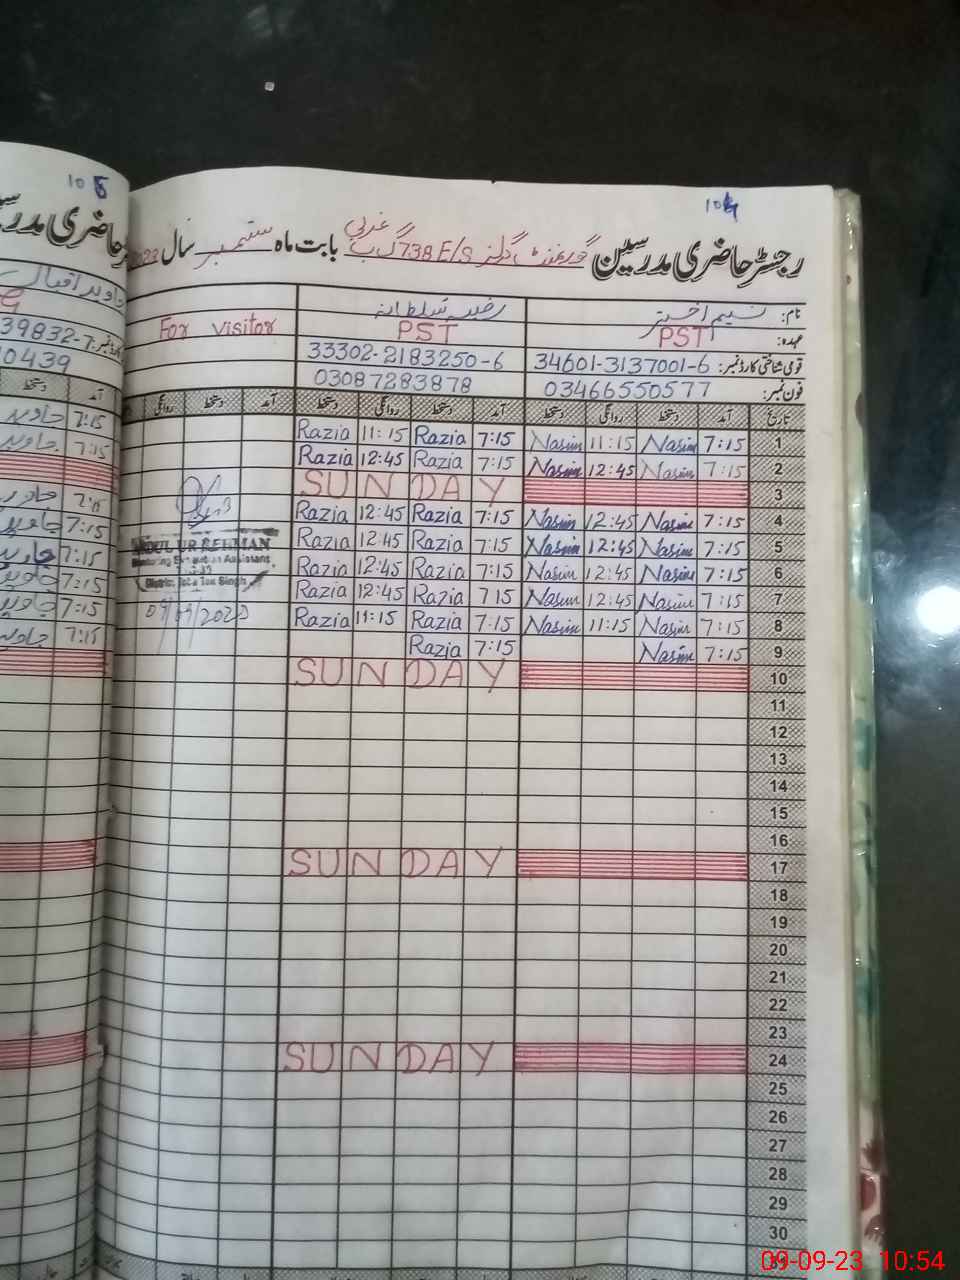 105
104
رجسٹر حاضری مدرسین گورنمنٹ گرلز E/S 738 گ ب غربی بابت ماہ ستمبر سال
نام: نسیم اختر رضیہ سلطانہ
عہدہ: PST PST For visitor
قومی شناختی کارڈ نمبر: 34601-3137001-6 33302-2183250-6
فون نمبر: 03466550577 03087283878
تاریخ آمد دستخط روانگی دستخط آمد دستخط روانگی دستخط آمد دستخط روانگی
1 7:15 Nasim 11:15 Nasim 7:15 Razia 11:15 Razia
2 7:15 Nasim 12:45 Nasim 7:15 Razia 12:45 Razia
3 SUNDAY
4 7:15 Nasim 12:45 Nasim 7:15 Razia 12:45 Razia
5 7:15 Nasim 12:45 Nasim 7:15 Razia 12:45 Razia
6 7:15 Nasim 12:45 Nasim 7:15 Razia 12:45 Razia
7 7:15 Nasim 12:45 Nasim 7 15 Razia 12:45 Razia
8 7:15 Nasim 11:15 Nasim 7:15 Razia 11:15 Razia
9 7:15 Nasim 7:15 Razia
10 SUNDAY
11
12
13
14
15
16
17 SUNDAY
18
19
20
21
22
23
24 SUNDAY
25
26
27
28
29
30
UR REHMAN
Assistant
District Toba Tek Singh
حاضری
جاوید اقبال
39832-7
0439
آمد دستخط
7:15 جاوید
7:15 جاوید
7:15 جاوید
7:15 جاوید
7:15 جاوید
7:15 جاوید
7:15 جاوید
7:15 جاوید
09-09-23 10:54